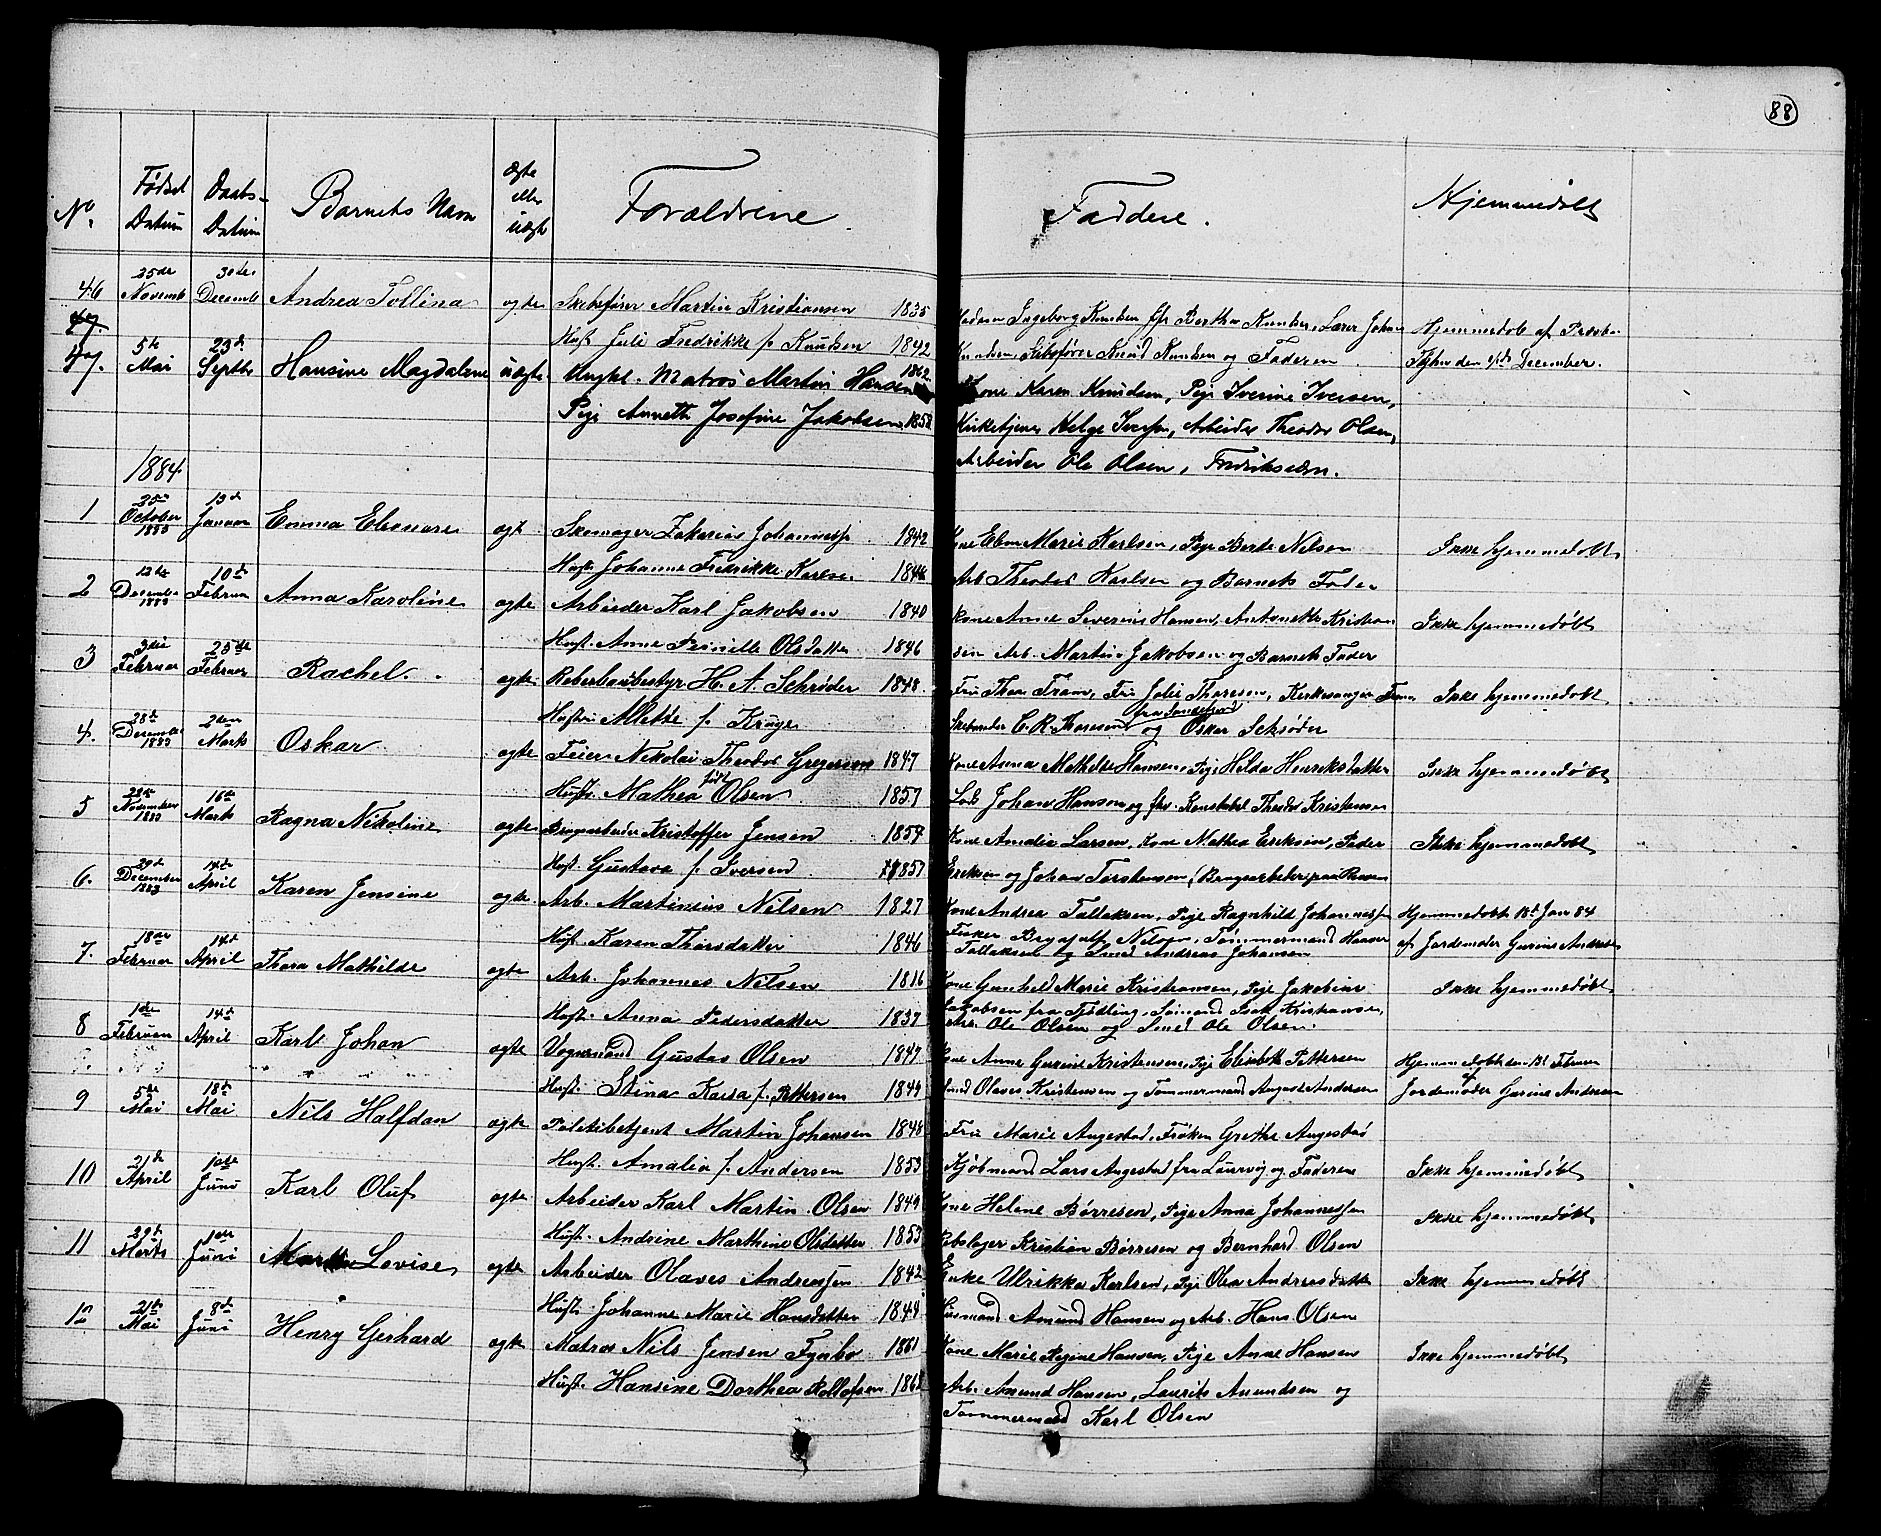 88
No. Fødsel Datum Daabs- Datum Barnets Navn Ægte eller uægte Forældrene Faddere. Hjemmedøbt
46 25de Novemb 30te Decemb Andrea Tolline ægte Skibsfører Martin Kristiansen 1835 Madam Ingeborg Knudsen Berthe Knudsen, Lærer Johan Hjemmedøbt af
Hust Juli Fredrikke f. Knudsen 1842 Knudsen, Skibsfører Knud Knudsen og Faderen den Decemb.
47. 5te Mai 23de Septb Hansine Magdalene uægte Ungkl. Matros Martin Hansen 1862 Kone Karen Knudsen, Pige Iverine Iversen,
Pige Annette Josefine Jakobsen 1858 Kirketjener Helge Iversen, Arbeider Theodor Olsen,
Arbeider Ole Olsen, Fredriksværn.
1884
1 25de October 1883 13de Januar Emma Eleonore ægt Skomager Zakarias Johannessen 1842 Kone Marie Karlsen, Pige Berte Nilsen Ikke hjemmedøbt
Hust. Johanne Fredrikke Karlsen 1846 Arb Theodor Karlsen og Barnets Fader
2 12te December 1883 10de Februar Anna Karoline ægte Arbeider Karl Jakobsen 1840 Kone Anne Severine Hansen, Antonette Kristian Ikke hjemmedøbt
Hust. Anne Pernille Olsdatter 1846 sen Arb. Martin Jakobsen og Barnets Fader
3 3die Februar 25de Februar Rachel. ægte Reberbanbestyr H. A. Schrøder 1848 Fru Thea Fram, Fru Julie Thoresen, Kirkesanger Fram Ikke hjemmedøbt
Hustru Alette f. Kruge Skibsreder C. R. Thoresen fra Sandefjord og Oskar Schrøder
4. 28de December 1883 2den Marts Oskar ægte Feier Nikolai Theodor Gregersen 1847 Kone Anna Mathilde Hansen, Pige Helda Henriksdatter Ikke hjemmedøbt
Hustr. Mathea født Olsen 1857 Lods Johan Hansen og fhv. Konstabel Theodor Kristensen
5 28de November 1883 16de Marts Ragna Nikoline ægte Brugsarbeider Kristoffer Jensen 1854 Kone Amalia Larsen, Kone Mathea Eriksen, Peder Ikke hjemmedøbt
Hust. Gustava f. Iversen 1857 Eriksen og Johan Torstensen
6. 29de December 1883 14de April Karen Jensine ægte Arb. Martinius Nilsen 1827 Kone Andrea Tallaksen, Pige Ragnhild Johannessen Hjemmedøbt 18de Jan 84
Hust. Karen Thorsdatter 1846 Fisker Brynjulf Nilsen, Tømmermand Hans Tallaksen og Smed Andreas Johansen af Jordemoder Gurine Andersen
7. 18de Februar 14de April Thora Mathilde ægte Arb. Johannes Nilsen 1816 Kone Gunhild Marie Kristiansen, Pige Jakobine Ikke hjemmedøbt
Hust. Anna Pedersdatter 1837 Jakobsen fra Tjødling, Sømand Isak Kristiansen, Arb. Ole Olsen og Smed Ole Olsen.
8 1ste Februar 14de April Karl Johan ægte Vognmand Gustav Olsen 1847 Kone Anne Gurine Kristensen, Pige Elisabeth Pettersen Hjemmedøbt den Februar
Hust. Stina Kaisa f. Pettersen 1849 Olaves Kristensen og Tømmermand August Andersen af Jordemoder Gurine Andersen
9 5te Mai 18de Mai Nils Halfdan ægte Politibetjent Martin Johansen 1846 Fru Marie Angestad, Frøken Grethe Angestad
Hust. Amalia f. Andersen 1853 Kjøbmand Lars Angestad fra Laurvig og Faderen Ikke hjemmedøbt
10 21de April 1ste Juni Karl Oluf ægte Arbeider Karl Martin Olsen 1849 Kone Helene Børresen, Pige Anna Johannessen Ikke hjemmedøbt
Hust. Andrine Marthine Olsdatter 1853 Rebslager Kristian Børresen og Bernhard Olsen
11 29de Marts 1ste Juni Lovise ægte Arbeider Olaves Andreassen 1842 Enke Ulrikke Karlsen, Pige Olea Andreasdatter Ikke hjemmedøbt
Hust. Johanne Marie Hansdatter 1844 Husmand Amund Hansen og Arb. Hans Olsen
12 21de Mai 8de Juni Henry Gerhard ægte Matros Nils Jensen Fynbo 1861 Kone Marie Regine Hansen, Pige Anne Hansen Ikke hjemmedøbt
Hust. Hansine Dorthea Rollofsen 186 Arb. Amund Hansen, Laurits Amundsen og
Tømmermand Karl Olsen